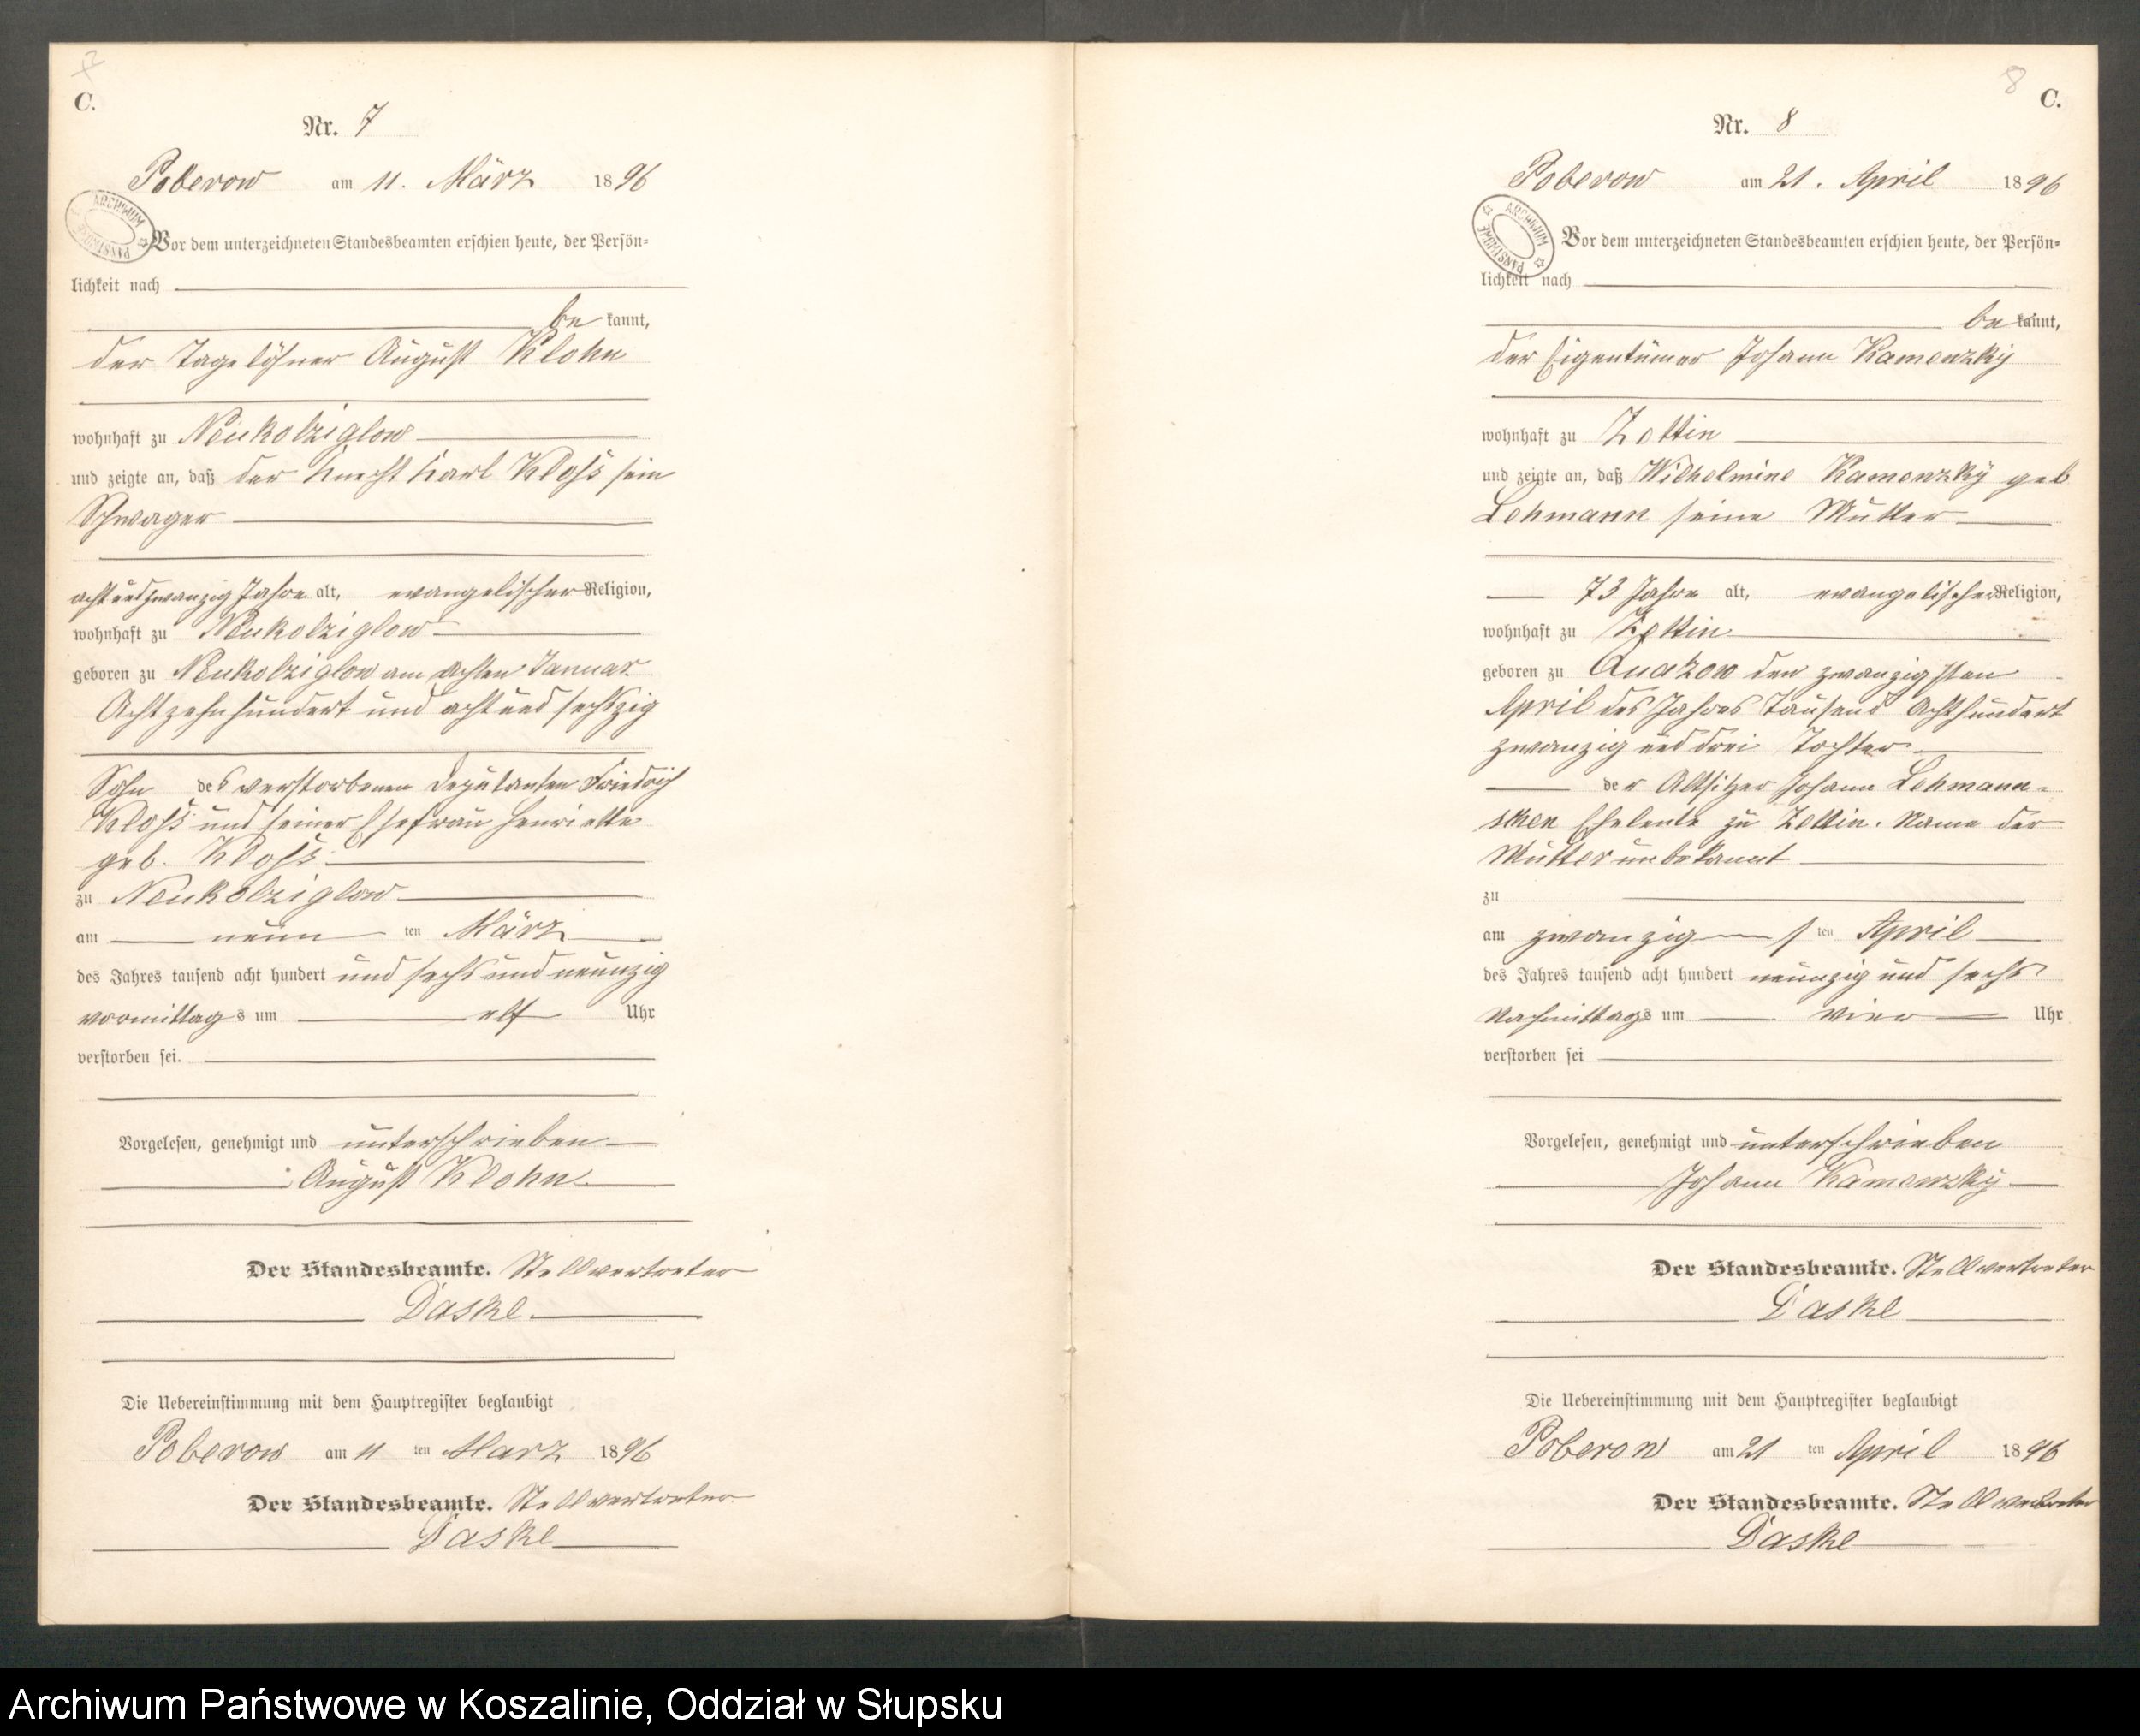 C.
Nr. 7
Poberow am 11. März 1896
Vor dem unterzeichneten Standesbeamten erschien heute, der Persön-
lichkeit nach
be kannt,
der Tagelöhner August Klohn
wohnhaft zu Neukolziglow
und zeigte an, daß der Knecht Karl Kloss sein
Schwager
acht und zwanzig Jahre alt, evangelischer Religion,
wohnhaft zu Neukolziglow
geboren zu Neukolziglow am achten Januar
Achtzehnhundert und acht und sechszig
Sohn des verstorbenen Deputanten Friedrich
Kloss und seiner Ehefrau Henriette
geb. Kloss
zu Neukolziglow
am neun ten März
des Jahres tausend acht hundert und sechs und neunzig
vormittags um elf Uhr
verstorben sei.
Vorgelesen, genehmigt und unterschrieben
August Klohn
Der Standesbeamte. Stellvertreter
Daske
Die Uebereinstimmung mit dem Hauptregister beglaubigt
Poberow am 11 ten Marz 1896
Der Standesbeamte. Stellvertreter
Daske
8
C.
Nr. 8
Poberow am 21. April 1896
ARCHIWUM PAŃSTWOWE
Vor dem unterzeichneten Standesbeamten erschien heute, der Persön-
lichkeit nach
be kannt,
der Eigentümer Johann Kamenzky
wohnhaft zu Zettin
und zeigte an, daß Wilhelmine Kamenzky geb
Lehmann seine Mutter
73 Jahre alt, evangelischer Religion,
wohnhaft zu Zettin
geboren zu Quazow den zwanzigsten
April des Jahres Tausend Achthundert
zwanzig und drei Tochter
der Altsitzer Johann Lehmann-
schen Eheleute zu Zettin. Name der
Mutter unbekannt
zu
am zwanzigs ten April
des Jahres tausend acht hundert neunzig und sechs
Nachmittags um vier Uhr
verstorben sei
Vorgelesen, genehmigt und unterschrieben
Johann Kamenzky
Der Standesbeamte. Stellvertreter
Daske
Die Uebereinstimmung mit dem Hauptregister beglaubigt
Poberow am 21 ten April 1896
Der Standesbeamte. Stellvertreter
Daske
Archiwum Państwowe w Koszalinie, Oddział w Słupsku